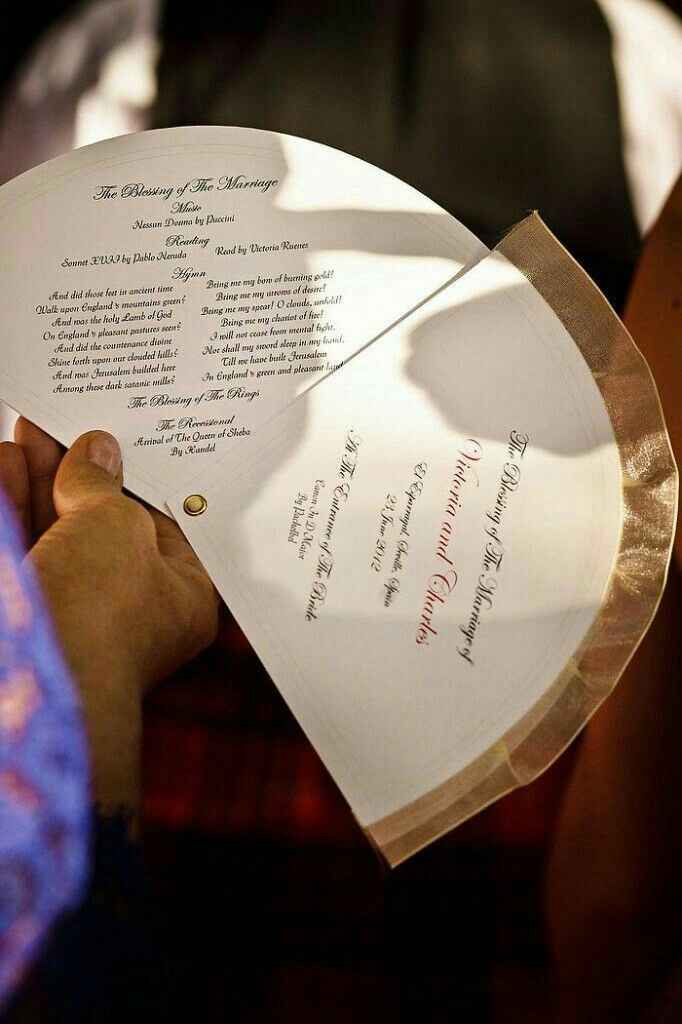 The Blessing of The Marriage
Music
Nessun Dorma by Puccini
Reading
Sonnet XVII by Pablo Neruda Read by Victoria Ruenes
Hymn
And did those feet in ancient time
Walk upon England's mountains green?
And was the holy Lamb of God
On England's pleasant pastures seen?
And did the countenance divine
Shine forth upon our clouded hills?
And was Jerusalem builded here
Among these dark satanic mills?
Bring me my bow of burning gold!
Bring me my arrows of desire!
Bring me my spear! O clouds, unfold!
Bring me my chariot of fire!
I will not cease from mental fight,
Nor shall my sword sleep in my hand,
Till we have built Jerusalem
In England's green and pleasant land
The Blessing of The Rings
The Recessional
Arrival of The Queen of Sheba
By Handel
The Blessing of The Marriage of
Victoria and Charles
Seville, Spain
23 June 2012
The Entrance of The Bride
Canon In D Major
By Pachelbel